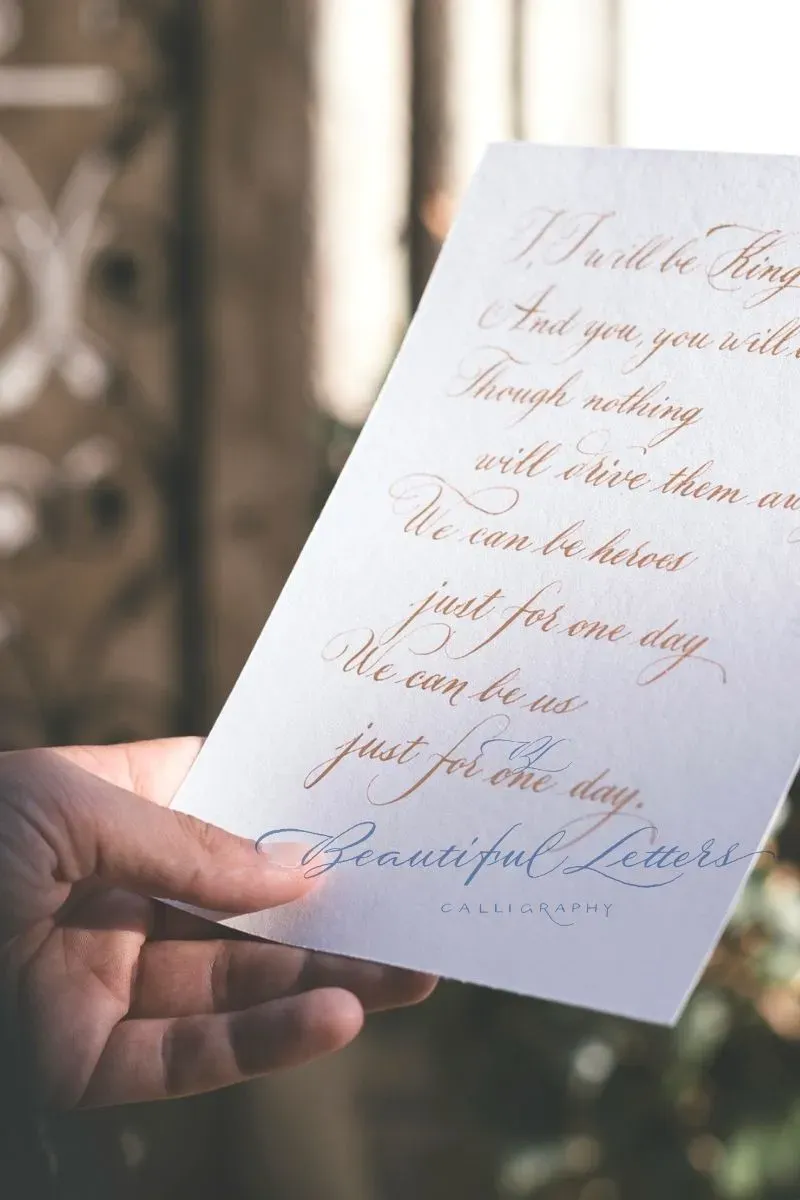 I, I will be King
And you, you will
Though nothing
will drive them
We can be heroes
just for one day
We can be us
just for one day.
BL
Beautiful Letters
CALLIGRAPHY